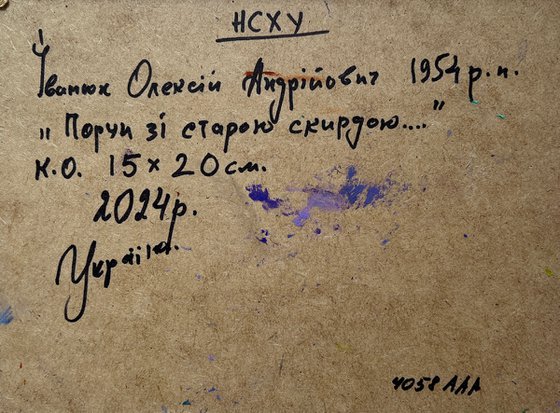 НСХУ
Іванюк Олексій Андрійович 1954 р.н.
„Поруч зі старою скирдою...."
К.О. 15 х 20 см.
2024р.
Україна.
4058 ААА